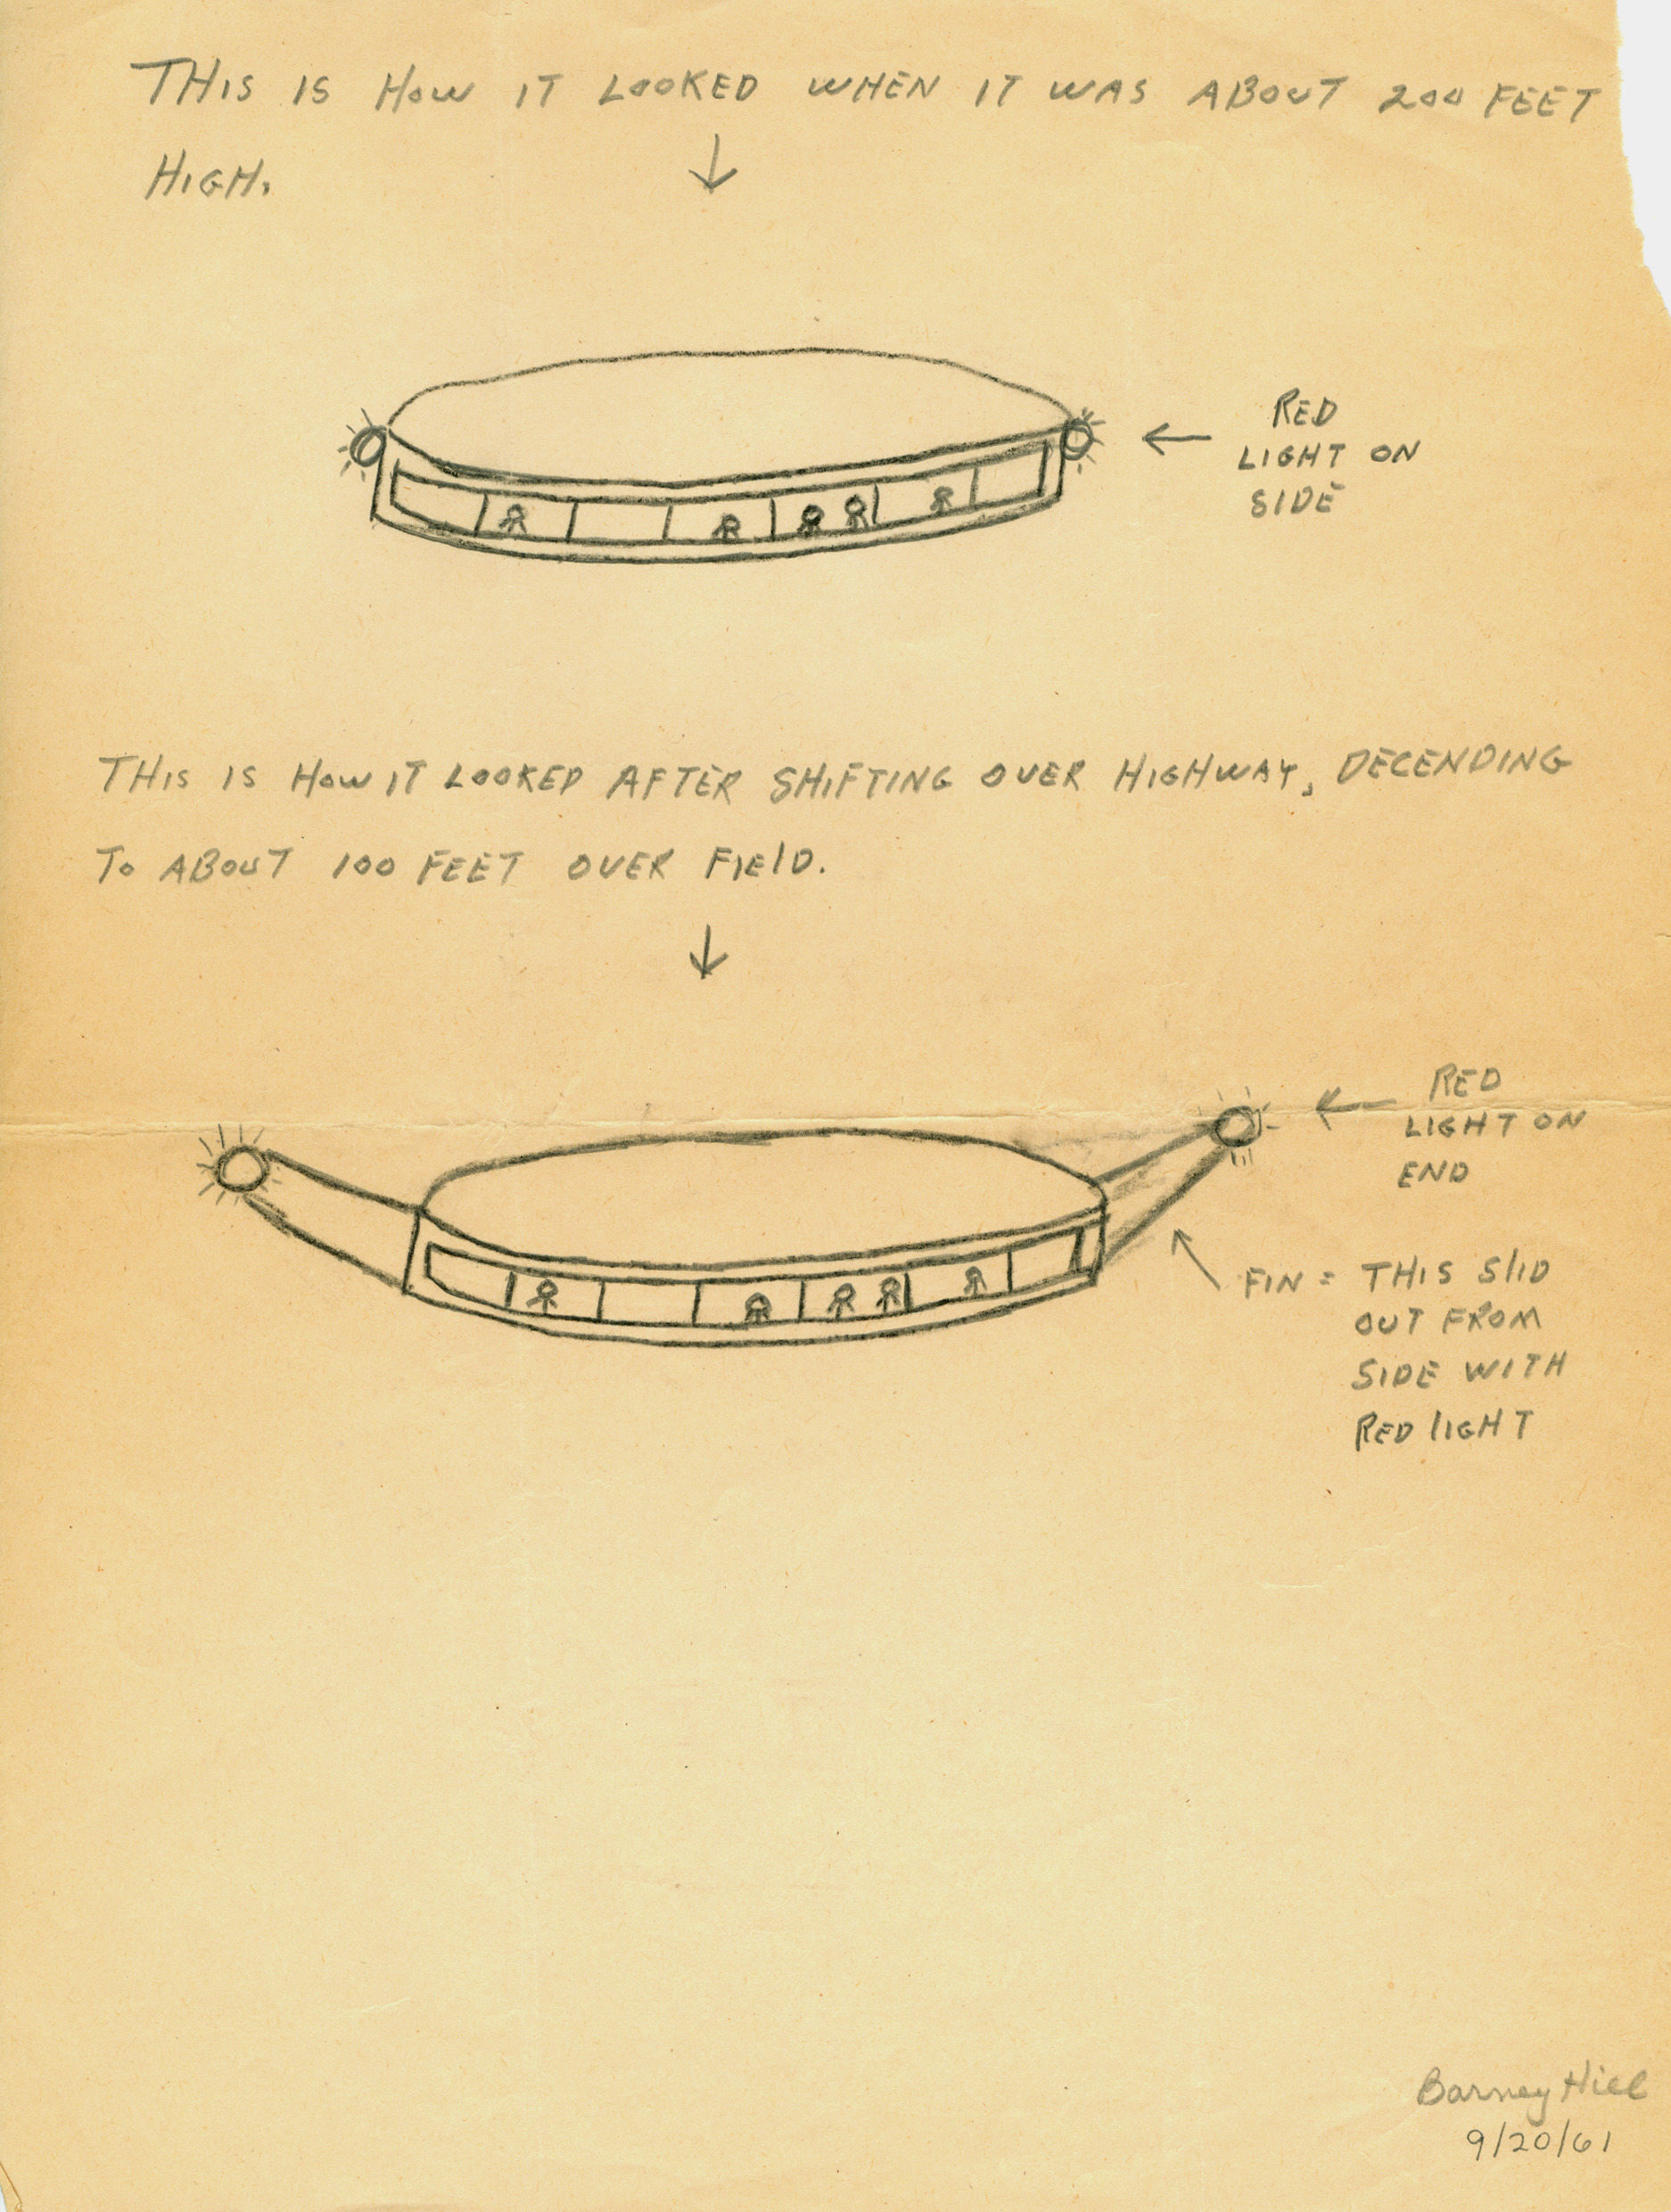 THIS IS HOW IT LOOKED WHEN IT WAS ABOUT 200 FEET
HIGH.
RED
LIGHT ON
SIDE
THIS IS HOW IT LOOKED AFTER SHIFTING OVER HIGHWAY, DECENDING
TO ABOUT 100 FEET OVER FIElD.
RED
LIGHT ON
END
FIN = THIS SlID
OUT FROM
SIDE WITH
RED lIGHT
Barney Hill
9/20/61